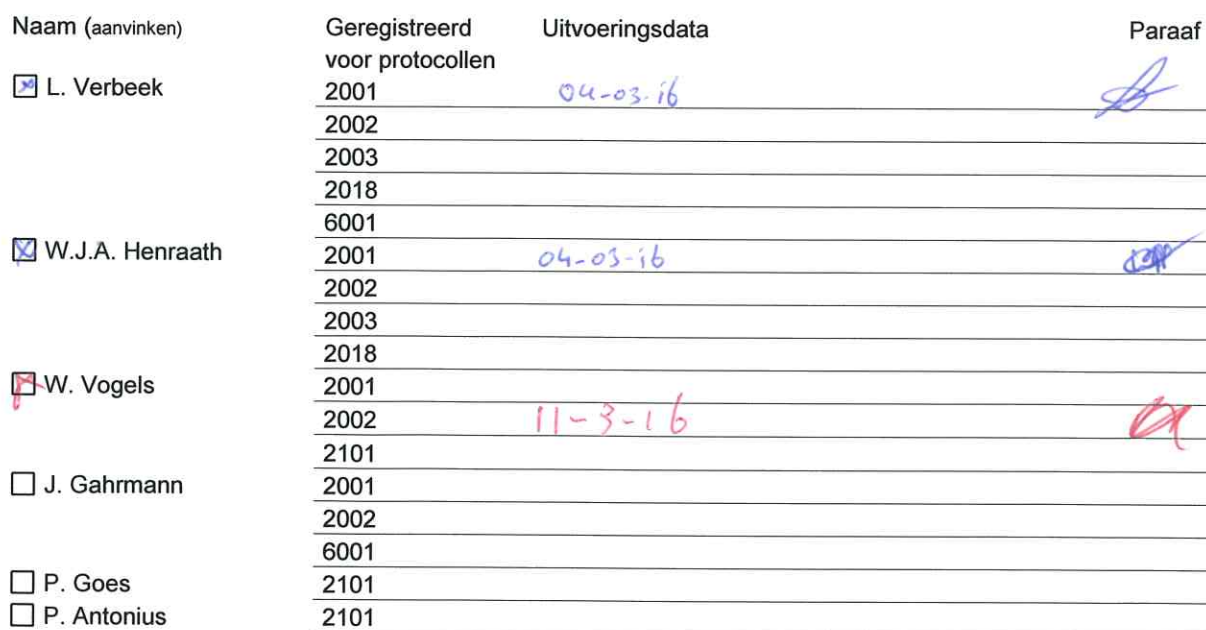 Naam (aanvinken) Geregistreerd voor protocollen Uitvoeringsdata Paraaf
L. Verbeek 2001 04-03-16
2002
2003
2018
6001
W.J.A. Henraath 2001 04-03-16
2002
2003
2018
W. Vogels 2001
2002 11-3-16
2101
J. Gahrmann 2001
2002
6001
P. Goes 2101
P. Antonius 2101